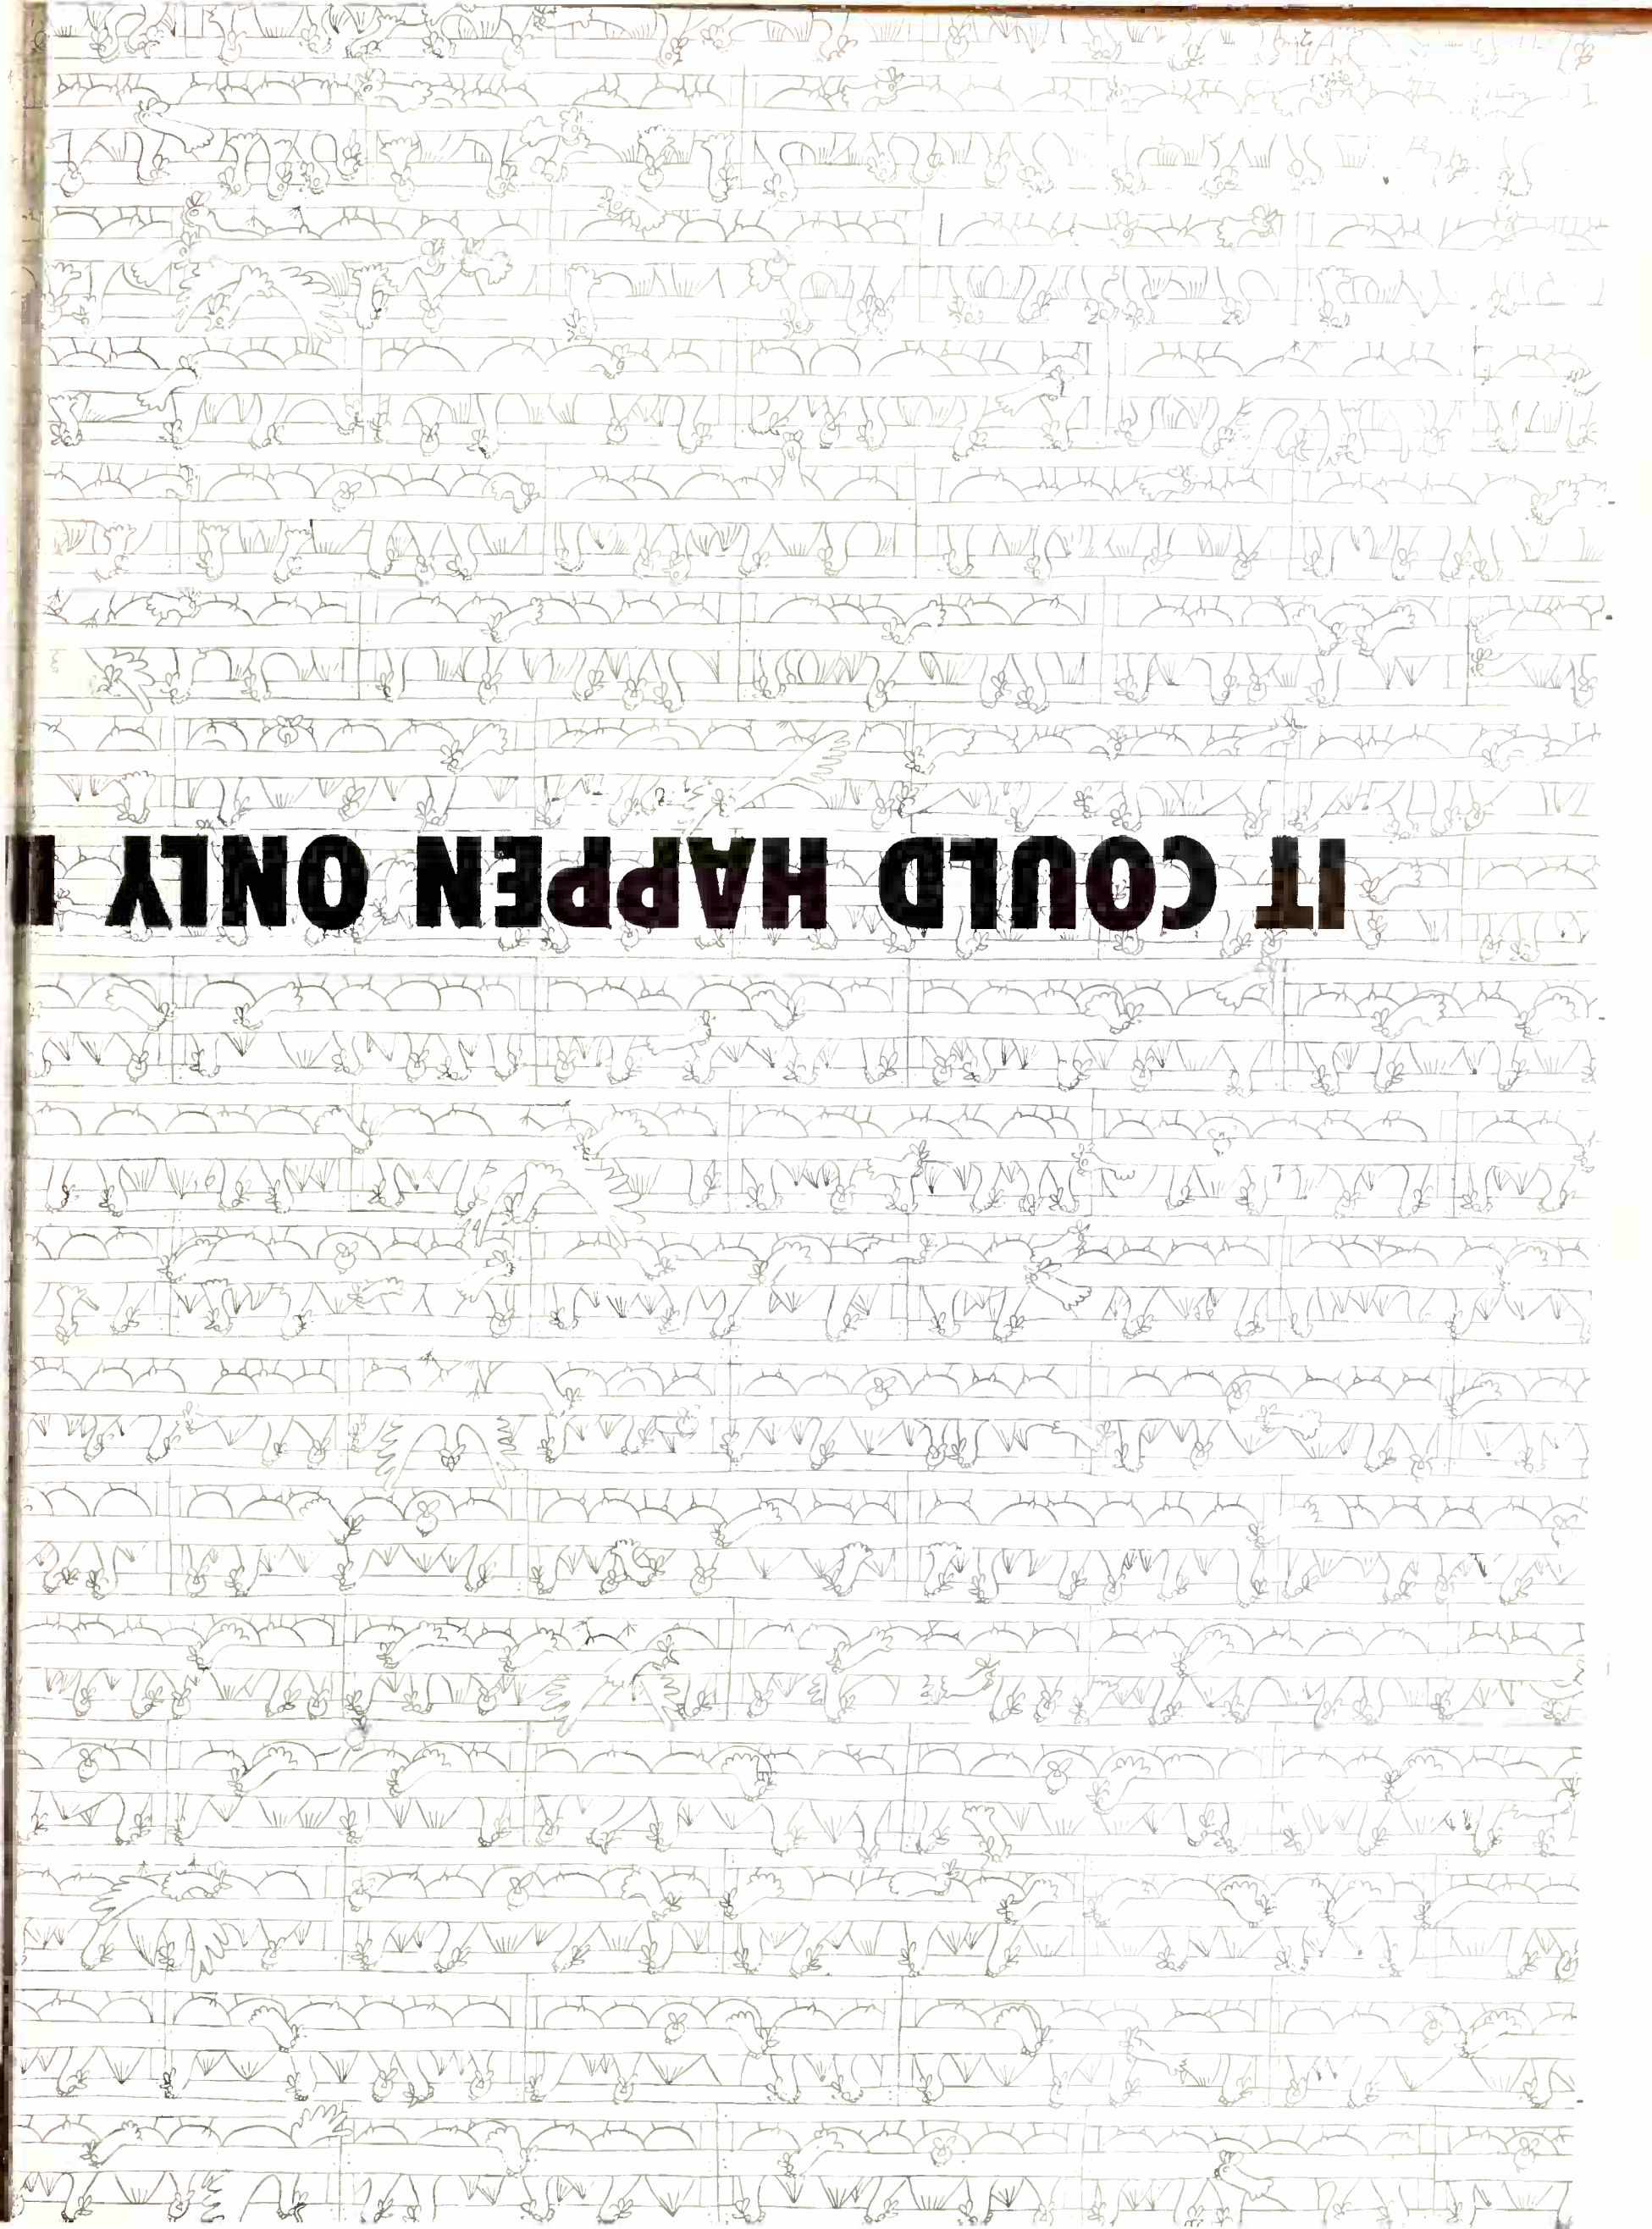 IT COULD HAPPEN ONLY